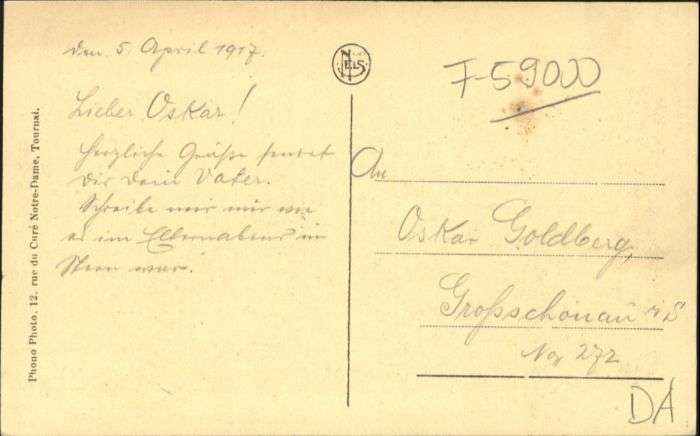 den 5. April 1917.
Lieber Oskar!
Herzliche Grüße sendet
Dir Dein Vater.
Schreibe mir nur wie
es im Elternabend im
Stern war.
NELS
F-59000
An
Oskar Goldberg,
Großschönau i/S
No 272
DA
Phono Photo, 12, rue du Curé Notre-Dame, Tournai.